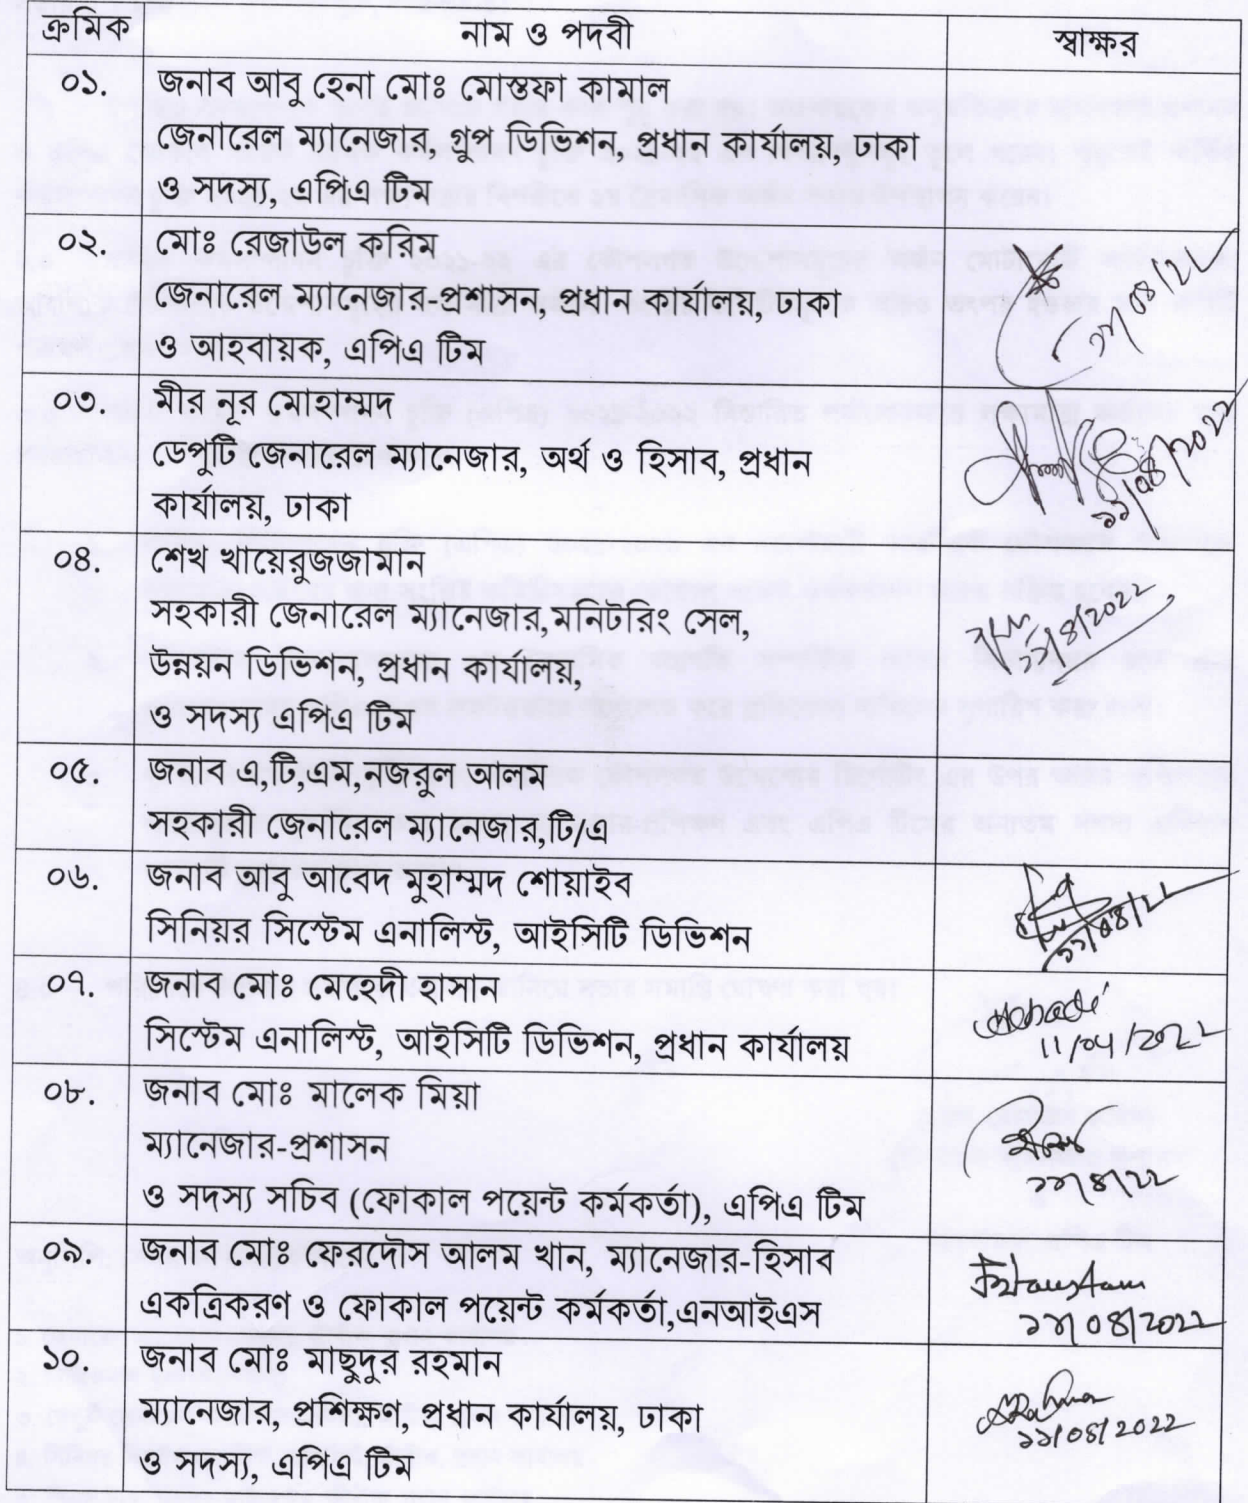 ক্রমিক নাম ও পদবী স্বাক্ষর
০১. জনাব আবু হেনা মোঃ মোস্তফা কামাল
জেনারেল ম্যানেজার, গ্রুপ ডিভিশন, প্রধান কার্যালয়, ঢাকা
ও সদস্য, এপিএ টিম
০২. মোঃ রেজাউল করিম
জেনারেল ম্যানেজার-প্রশাসন, প্রধান কার্যালয়, ঢাকা
ও আহবায়ক, এপিএ টিম
০৩ মীর নূর মোহাম্মদ
ডেপুটি জেনারেল ম্যানেজার, অর্থ ও হিসাব, প্রধান
কার্যালয়, ঢাকা
০৪. শেখ খায়েরুজজামান
সহকারী জেনারেল ম্যানেজার,মনিটরিং সেল,
উন্নয়ন ডিভিশন, প্রধান কার্যালয়,
ও সদস্য এপিএ টিম
০৫. জনাব এ,টি,এম,নজরুল আলম
সহকারী জেনারেল ম্যানেজার,টি/এ
০৬. জনাব আবু আবেদ মুহাম্মদ শোয়াইব
সিনিয়র সিস্টেম এনালিস্ট, আইসিটি ডিভিশন
০৭. জনাব মোঃ মেহেদী হাসান
সিস্টেম এনালিস্ট, আইসিটি ডিভিশন, প্রধান কার্যালয়
11/04/2022
০৮. জনাব মোঃ মালেক মিয়া
ম্যানেজার-প্রশাসন
ও সদস্য সচিব (ফোকাল পয়েন্ট কর্মকর্তা), এপিএ টিম
০৯. জনাব মোঃ ফেরদৌস আলম খান, ম্যানেজার-হিসাব
একত্রিকরণ ও ফোকাল পয়েন্ট কর্মকর্তা,এনআইএস
১০. জনাব মোঃ মাছুদুর রহমান
ম্যানেজার, প্রশিক্ষণ, প্রধান কার্যালয়, ঢাকা
ও সদস্য, এপিএ টিম